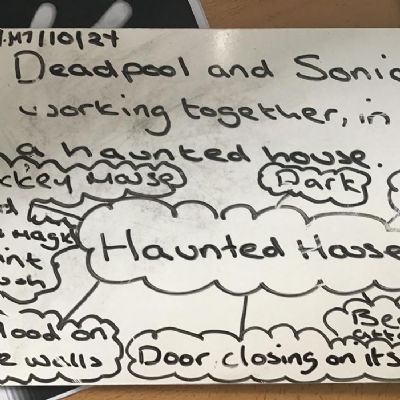 7/10/24
Deadpool and Sonic
working together, in
a haunted house.
ckey Mouse
Dark
Magic
int
Haunted House
lood on
e walls
Door closing on its
Be